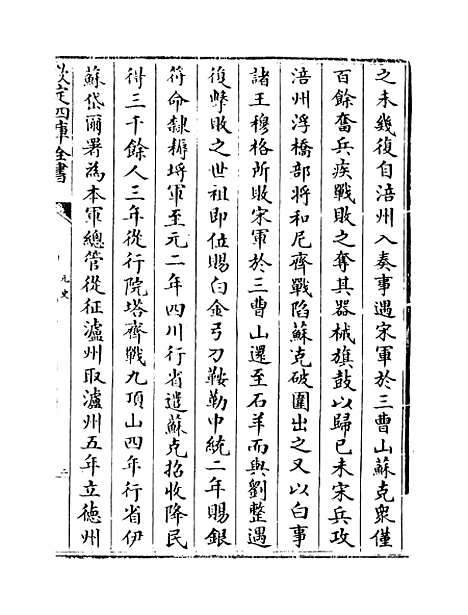 之未幾復自涪州入奏事遇宋軍於三曹山蘇克衆僅
百餘奮兵疾戰敗之奪其器械旗鼓以歸已未宋兵攻
涪州浮橋部將和尼齊戰陷蘇克破圍出之又以白事
諸王穆格所敗宋軍於三曹山還至石羊而與劉整遇
復擊敗之世祖即位賜白金弓刀鞍勒中統二年賜銀
符命隸褥埒軍至元二年四川行省遣蘇克招收降民
得三千餘人三年從行院塔齊戰九頂山四年行省伊
蘇岱爾署為本軍總管從征瀘州取瀘州五年立徳州
欽定四庫全書
元史
二